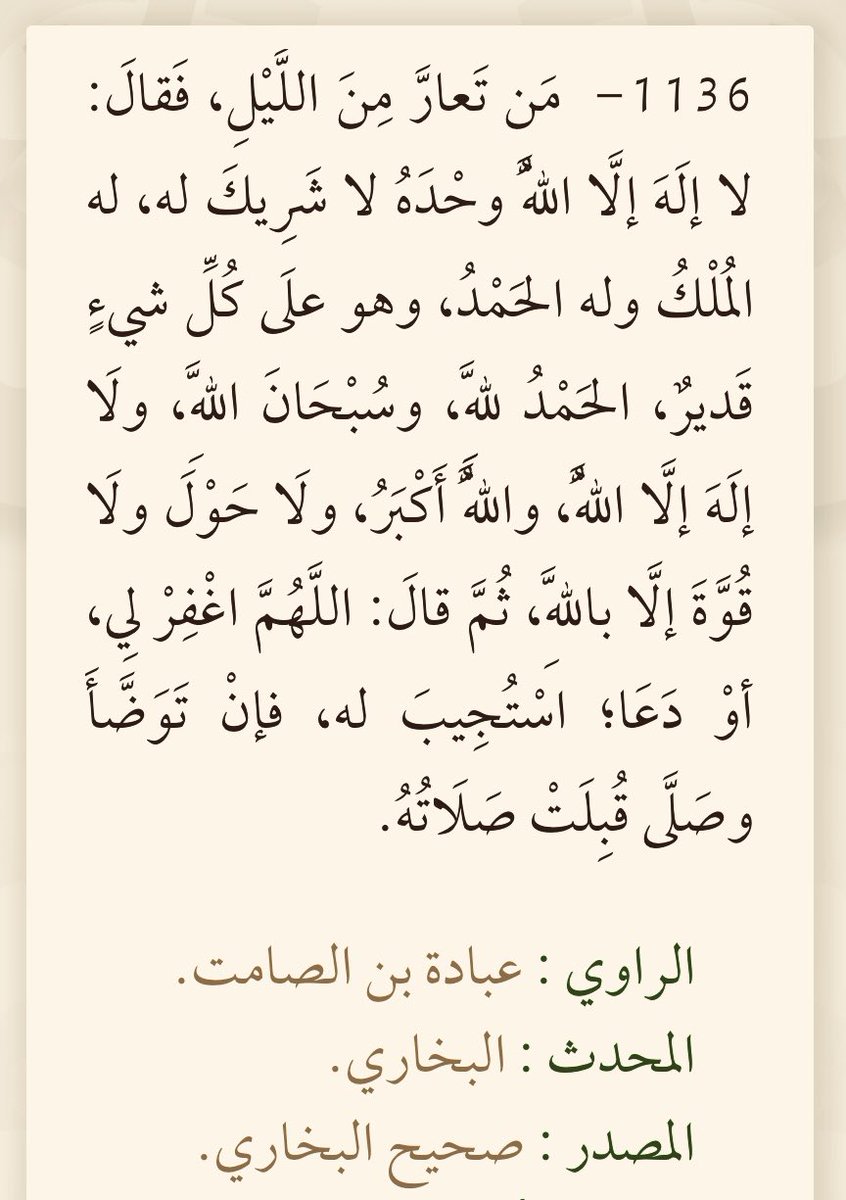 1136- مَن تَعارَّ مِنَ اللَّيْلِ، فَقالَ:
لا إلَهَ إلَّا اللَّهُ وحْدَهُ لا شَرِيكَ له، له
المُلْكُ وله الحَمْدُ، وهو علَى كُلِّ شيءٍ
قَديرٌ، الحَمْدُ لِلَّهِ، وسُبْحَانَ اللَّهِ، ولَا
إلَهَ إلَّا اللَّهُ، واللَّهُ أَكْبَرُ، ولَا حَوْلَ ولَا
قُوَّةَ إلَّا باللَّهِ، ثُمَّ قالَ: اللَّهُمَّ اغْفِرْ لِي،
أوْ دَعَا؛ اسْتُجِيبَ له، فإنْ تَوَضَّأَ
وصَلَّى قُبِلَتْ صَلَاتُهُ.
الراوي : عبادة بن الصامت.
المحدث : البخاري.
المصدر : صحيح البخاري.